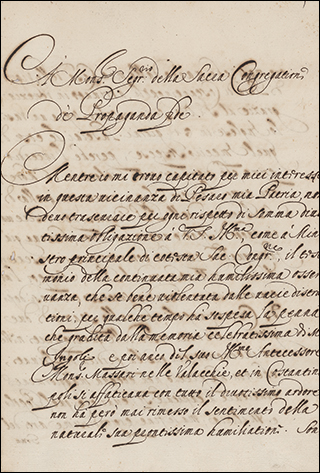 A Mons.r Segr.rio della Sacra Congregation
de Propaganda fde.
Mentre io mi trovo capitato per miei interesse
in questa vicinanza di Pesaro mia Patria, non
devo per ogni rispetto di somma
tissima obligazione a V.S. Ill.ma come a Min
stro principale di cotesta Sac. Congr.ne, il
monio della continuata mia humilissima osser
uanza, che se bene violentata dalle varie
per qualche tempo ha sospesa la penna
che gradita dalla memoria celebratissima di M
Ingoli e poi anco del suo Antecessore
Mons. Massari nelle Valacchie, et in Costantin
poli si affaticaua con tutto il diuotissimo ardore
non ha però mai rimesso il sentimento della
naturale sua prontissima humiliation. Son